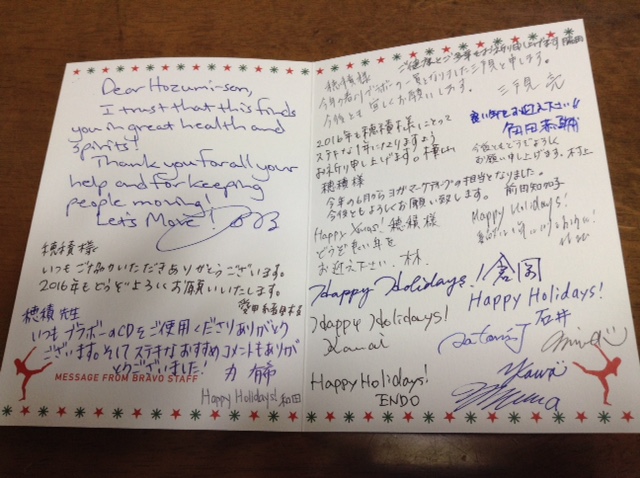 Dear Hozumi-san,
I trust that this finds
you in great health and
spirits!
Thank you for all your
help and for keeping
people moving!
Let's Move!
穂積様
いつもご協力いただきありがとうございます。
2016年もどうぞよろしくお願いいたします。
穂積先生
いつもブラボーのCDをご使用くださりありがとう
ございます。そしてステキなおすすめコメントもありが
とうございました! 力 有希
MESSAGE FROM BRAVO STAFF
Happy Holidays! 和田
穂積様
今後とも宜しくお願いします。
三戸 亮
2016年も穂積様にとって
ステキな1年になりますよう
お祈り申し上げます。横山
良い年をお迎え下さい!!
今後ともどうぞよろしく
お願い申し上げます。村上
穂積様
今年の6月からヨガマーケティングの担当となりました。
今後ともよろしくお願い致します。前田知加子
Happy Xmas! 穂積様
どうぞ良い年を
お迎え下さい。林
Happy Holidays!
Happy Holidays! 倉岡
Happy Holidays!
石井
Happy Holidays!
Kanai
Happy Holidays!
ENDO